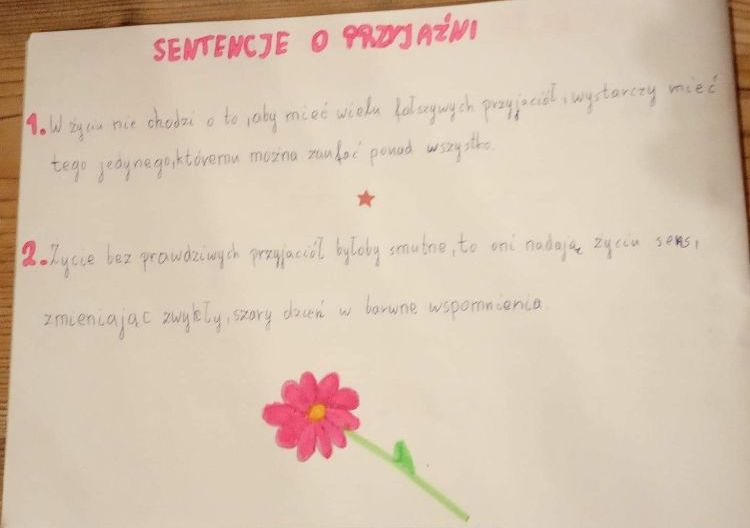 SENTENCJE O PRZYJAŹNI
1. W życiu nie chodzi o to, aby mieć wielu fałszywych przyjaciół, wystarczy mieć
tego jedynego, któremu można zaufać ponad wszystko.
2. Życie bez prawdziwych przyjaciół byłoby smutne, to oni nadają życiu sens,
zmieniając zwykły, szary dzień w barwne wspomnienia.